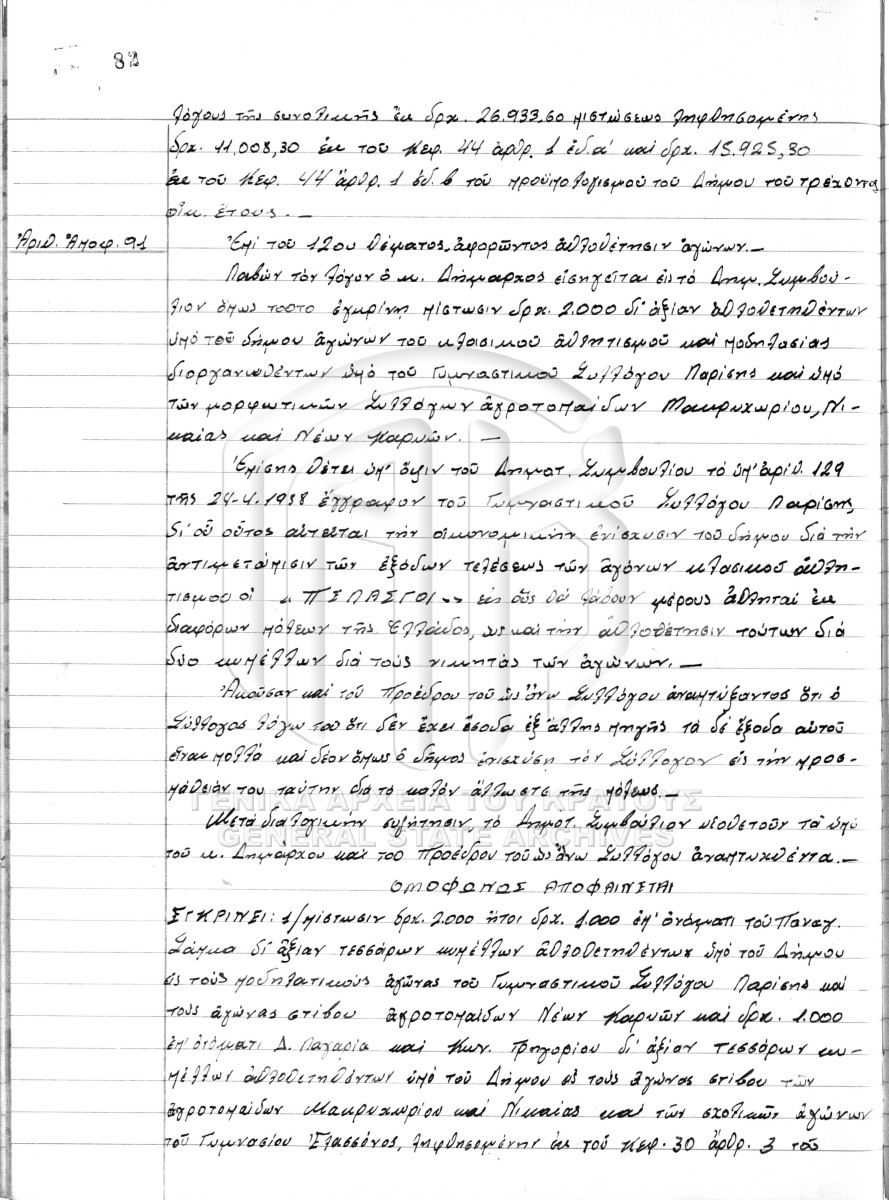 82
λόγους τῆς συνολικῆς ἐκ δρχ. 26.933,60 πιστώσεως ληφθησομένης
δρχ. 11.008,30 ἐκ τοῦ Κεφ. 44 ἄρθρ. 1 ἐδ. α' καὶ δρχ. 15.925,30
ἐκ τοῦ Κεφ. 44 ἄρθρ. 1 ἐδ. β τοῦ προϋπολογισμοῦ τοῦ Δήμου τοῦ τρέχοντος
οἰκ. ἔτους. —
Ἀριθ. Ἀποφ. 91
Ἐπί τοῦ 12ου θέματος, ἀφορῶντος ἀθλοθέτησιν ἀγώνων. —
Λαβών τόν λόγον ὁ κ. Δήμαρχος εἰσηγεῖται εἰς τό Δημ. Συμβού-
λιον ὅπως τοῦτο ἐγκρίνῃ πίστωσιν δρχ. 2.000 δι' ἀξίαν ἀθλοθετηθέντων
ὑπό τοῦ δήμου ἀγώνων τοῦ κλασικοῦ ἀθλητισμοῦ καί ποδηλασίας
διοργανωθέντων ὑπό τοῦ Γυμναστικοῦ Συλλόγου Λαρίσης καί ὑπό
τῶν μορφωτικῶν Συλλόγων ἀγροτοπαίδων Μακρυχωρίου, Νι-
καίας καί Νέων Καρυῶν. —
Ἐπίσης θέτει ὑπ' ὄψιν τοῦ Δημοτ. Συμβουλίου τό ὑπ' ἀριθ. 129
τῆς 24-4-1958 ἔγγραφον τοῦ Γυμναστικοῦ Συλλόγου Λαρίσης,
δι' οὗ οὗτος αἰτεῖται τήν οἰκονομικήν ἐνίσχυσιν τοῦ δήμου διά τήν
ἀντιμετώπισιν τῶν ἐξόδων τελέσεως τῶν ἀγόνων κλασικοῦ ἀθλη-
τισμοῦ οἱ «ΠΕΛΑΣΓΟΙ» εἰς οὕς θά λάβουν μέρους ἀθληταί ἐκ
διαφόρων πόλεων τῆς Ἑλλάδος, ὡς καί τήν ἀθλοθέτησιν τούτων διά
δύο κυπέλλων διά τούς νικητάς τῶν ἀγώνων. —
Ἀκοῦσαν καί τοῦ Προέδρου τοῦ ὡς ἄνω Συλλόγου ἀναπτύξαντος ὅτι ὁ
Σύλλογος λόγω τοῦ ὅτι δέν ἔχει ἔσοδα ἐξ ἄλλης πηγῆς τά δέ ἔξοδα αὐτοῦ
εἶναι πολλά καί δέον ὅπως ὁ δῆμος ἐνισχύσῃ τόν Σύλλογον εἰς τήν προσ-
πάθειάν του ταύτην διά τό καλόν ἄλλωστε τῆς πόλεως. —
ΓΕΝΙΚΑ ΑΡΧΕΙΑ ΤΟΥ ΚΡΑΤΟΥΣ
GENERAL STATE ARCHIVES
Μετά διαλογικήν συζήτησιν, τό Δημοτ. Συμβούλιον υἱοθετοῦν τά ὑπό
τοῦ κ. Δημάρχου καί τοῦ Προέδρου τοῦ ὡς ἄνω Συλλόγου ἀναπτυχθέντα. —
ΟΜΟΦΩΝΩΣ ΑΠΟΦΑΙΝΕΤΑΙ
ΕΓΚΡΙΝΕΙ: 1/ πίστωσιν δρχ. 2.000 ἤτοι δρχ. 1.000 ἐπ' ὀνόματι τοῦ Παναγ.
Σάπκα δι' ἀξίαν τεσσάρων κυπέλλων ἀθλοθετηθέντων ὑπό τοῦ Δήμου
εἰς τούς ποδηλατικούς ἀγῶνας τοῦ Γυμναστικοῦ Συλλόγου Λαρίσης καί
τούς ἀγώνας στίβου ἀγροτοπαίδων Νέων Καρυῶν καί δρχ. 1.000
ἐπ' ὀνόματι Δ. Λαγαρία καί Κων. Γρηγορίου δι' ἀξίαν τεσσάρων κυ-
πέλλων ἀθλοθετηθέντων ὑπό τοῦ Δήμου εἰς τούς ἀγῶνας στίβου τῶν
ἀγροτοπαίδων Μακρυχωρίου καί Νικαίας καί τῶν σχολικῶν ἀγώνων
τοῦ Γυμνασίου Ἐλασσόνος, ληφθησομένην ἐκ τοῦ Κεφ. 30 ἄρθρ. 3 τοῦ